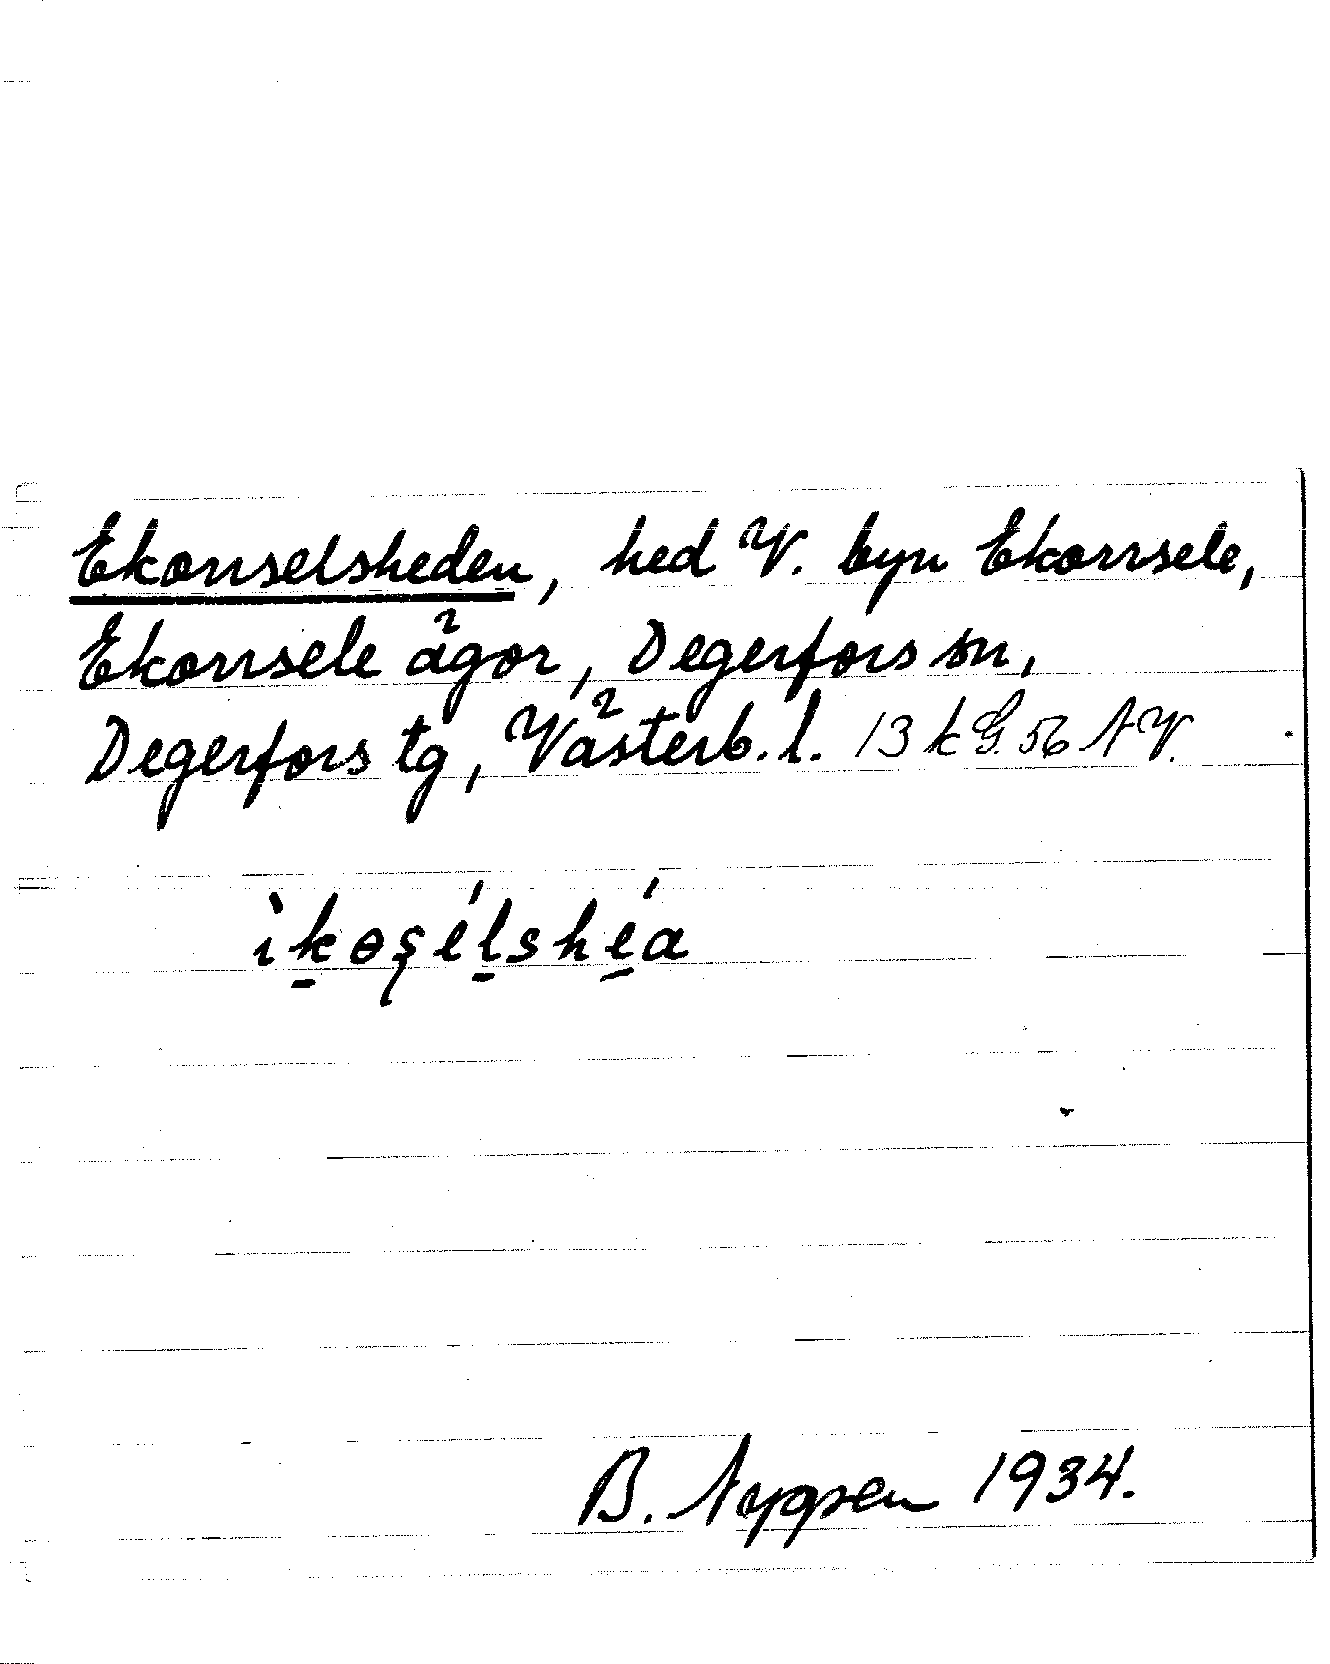 Ekorrselsheden, hed V. byn Ekorrsele,
Ekorrsele ägor, Degerfors sn,
Degerfors tg, Västerb. l. 13 k G. 56 NV.
ìkɵșélshéa
B. Nygren 1934.